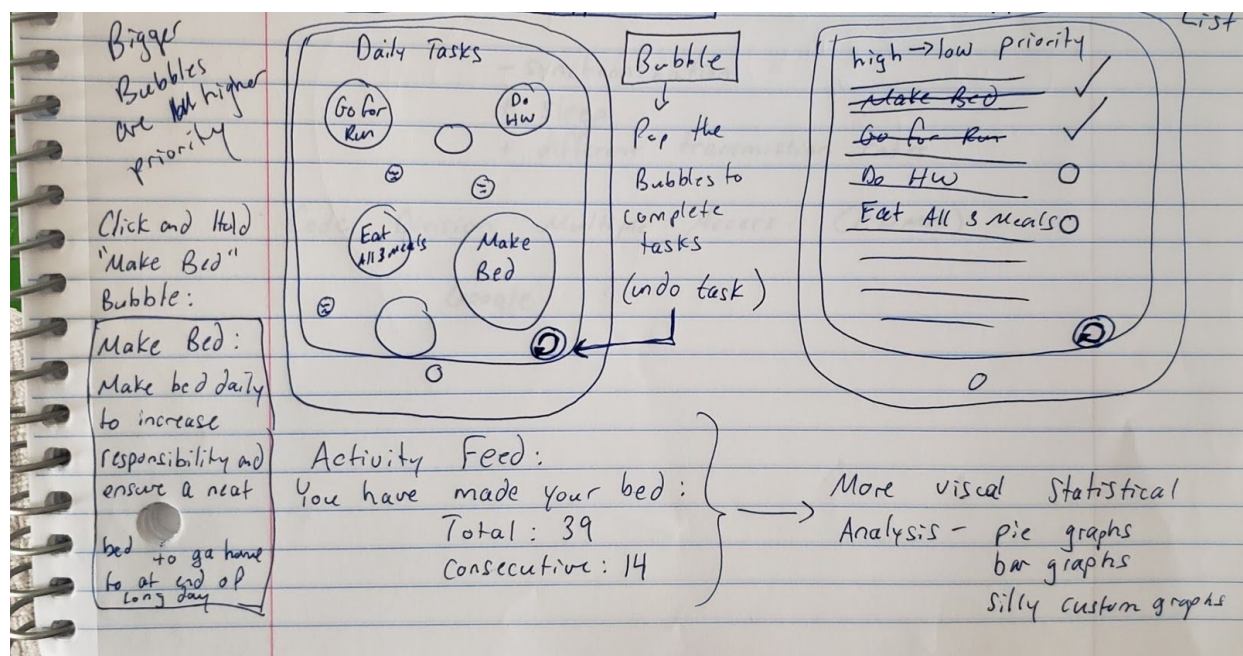 Bigger
Bubbles
are higher
priority
Click and Hold
"Make Bed"
Bubble:
Make Bed:
Make bed daily
to increase
responsibility and
ensure a neat
bed to go home
to at end of
long day
Daily Tasks
Go for
Run
Do
HW
Eat
All 3 meals
Make
Bed
Bubble
Pop the
Bubbles to
complete
tasks
(undo task)
List
high → low priority
Make Bed
Go for Run
Do HW
Eat All 3 meals
Activity Feed:
You have made your bed:
Total: 39
Consecutive: 14
More visual statistical
Analysis - pie graphs
bar graphs
silly custom graphs